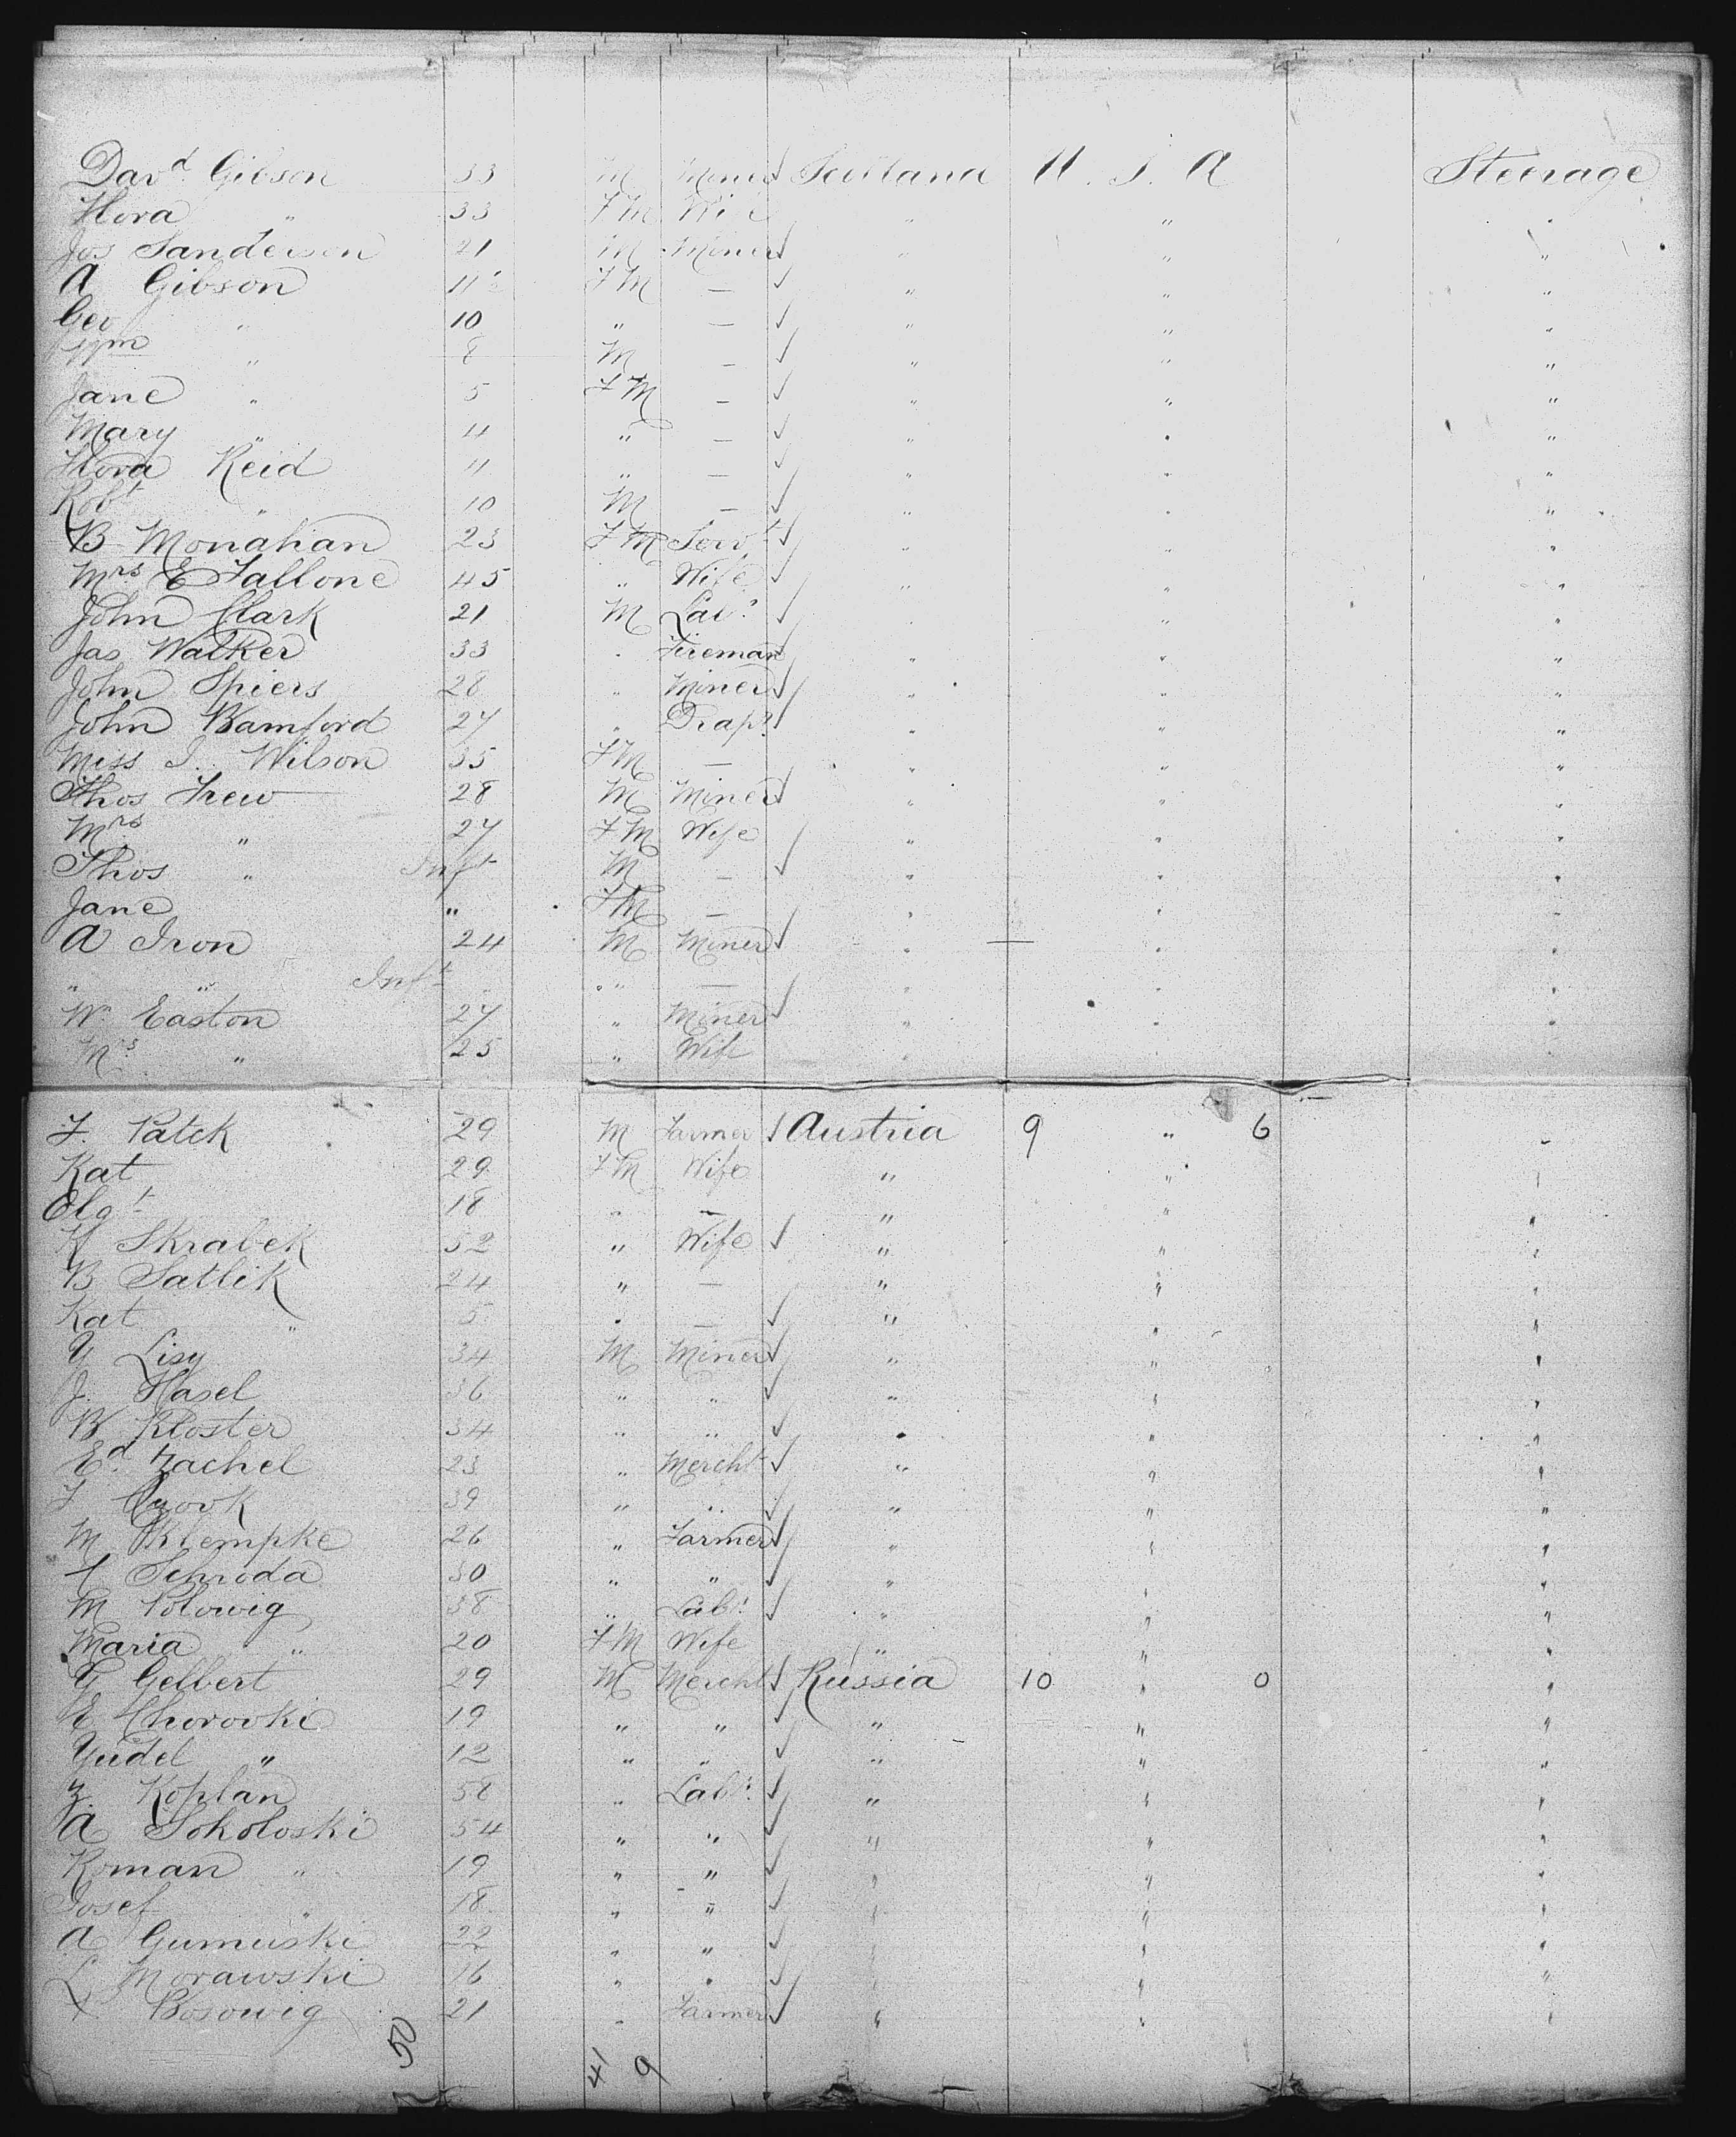 Dav^d Gibson 33 M Miner Scotland U. S. A Steerage
Flora " 33 FM Wife " " "
Jos Sanderson 21 M Miner " " "
A Gibson 11 FM — " " "
Geo " 10 " — " " "
Wm " 8 M — " " "
Jane " 5 FM — " " "
Mary " 4 " — " " "
Flora Reid 11 " — " " "
Robt " 10 M — " " "
B Monahan 23 FM Servt " " "
Mrs E Fallone 45 " Wife " " "
John Clark 21 M Labr " " "
Jas Walker 33 " Fireman " " "
John Spiers 28 " Miner " " "
John Bamford 27 " Drapr " " "
Miss I. Wilson 35 FM — " " "
Thos Frew 28 M Miner " " "
Mrs " 27 FM Wife " " "
Thos " Inft M — " " "
Jane " FM — " " "
A Iron 24 M Miner " " "
" " Inft " — " " "
Wm Easton 27 " Miner " " "
Mrs " 25 " Wife " " "
F. Patck 29 M Farmer Austria 9 " 6 "
Kat 29 FM Wife " " "
18 " — " " "
K Skrabek 52 " Wife " " "
B Satlik 24 " — " " "
Kat " 5 " — " " "
Y Lisy 34 M Miner " " "
J. Hasel 36 " " " " "
W Kloster 34 " " " " "
Ed. Zachel 23 " Mercht " " "
F 39 " " " " "
M Klempke 26 " Farmer " " "
Schroda 30 " " " " "
M Polowig 38 " Labr " " "
Maria " 20 FM Wife " " "
G Gelbert 29 M Mercht Russia 10 " 0 "
E Chorovki 19 " " " " "
Yudel " 12 " " " " "
Z. Koplan 58 " Labr " " "
A Sokoloski 54 " " " " "
Roman " 19 " " " " "
Josef " 18 " " " " "
A Gumuski 22 " " " " "
L Morawski 16 " " " " "
Bosowig 21 " Farmer " " "
50 41 9